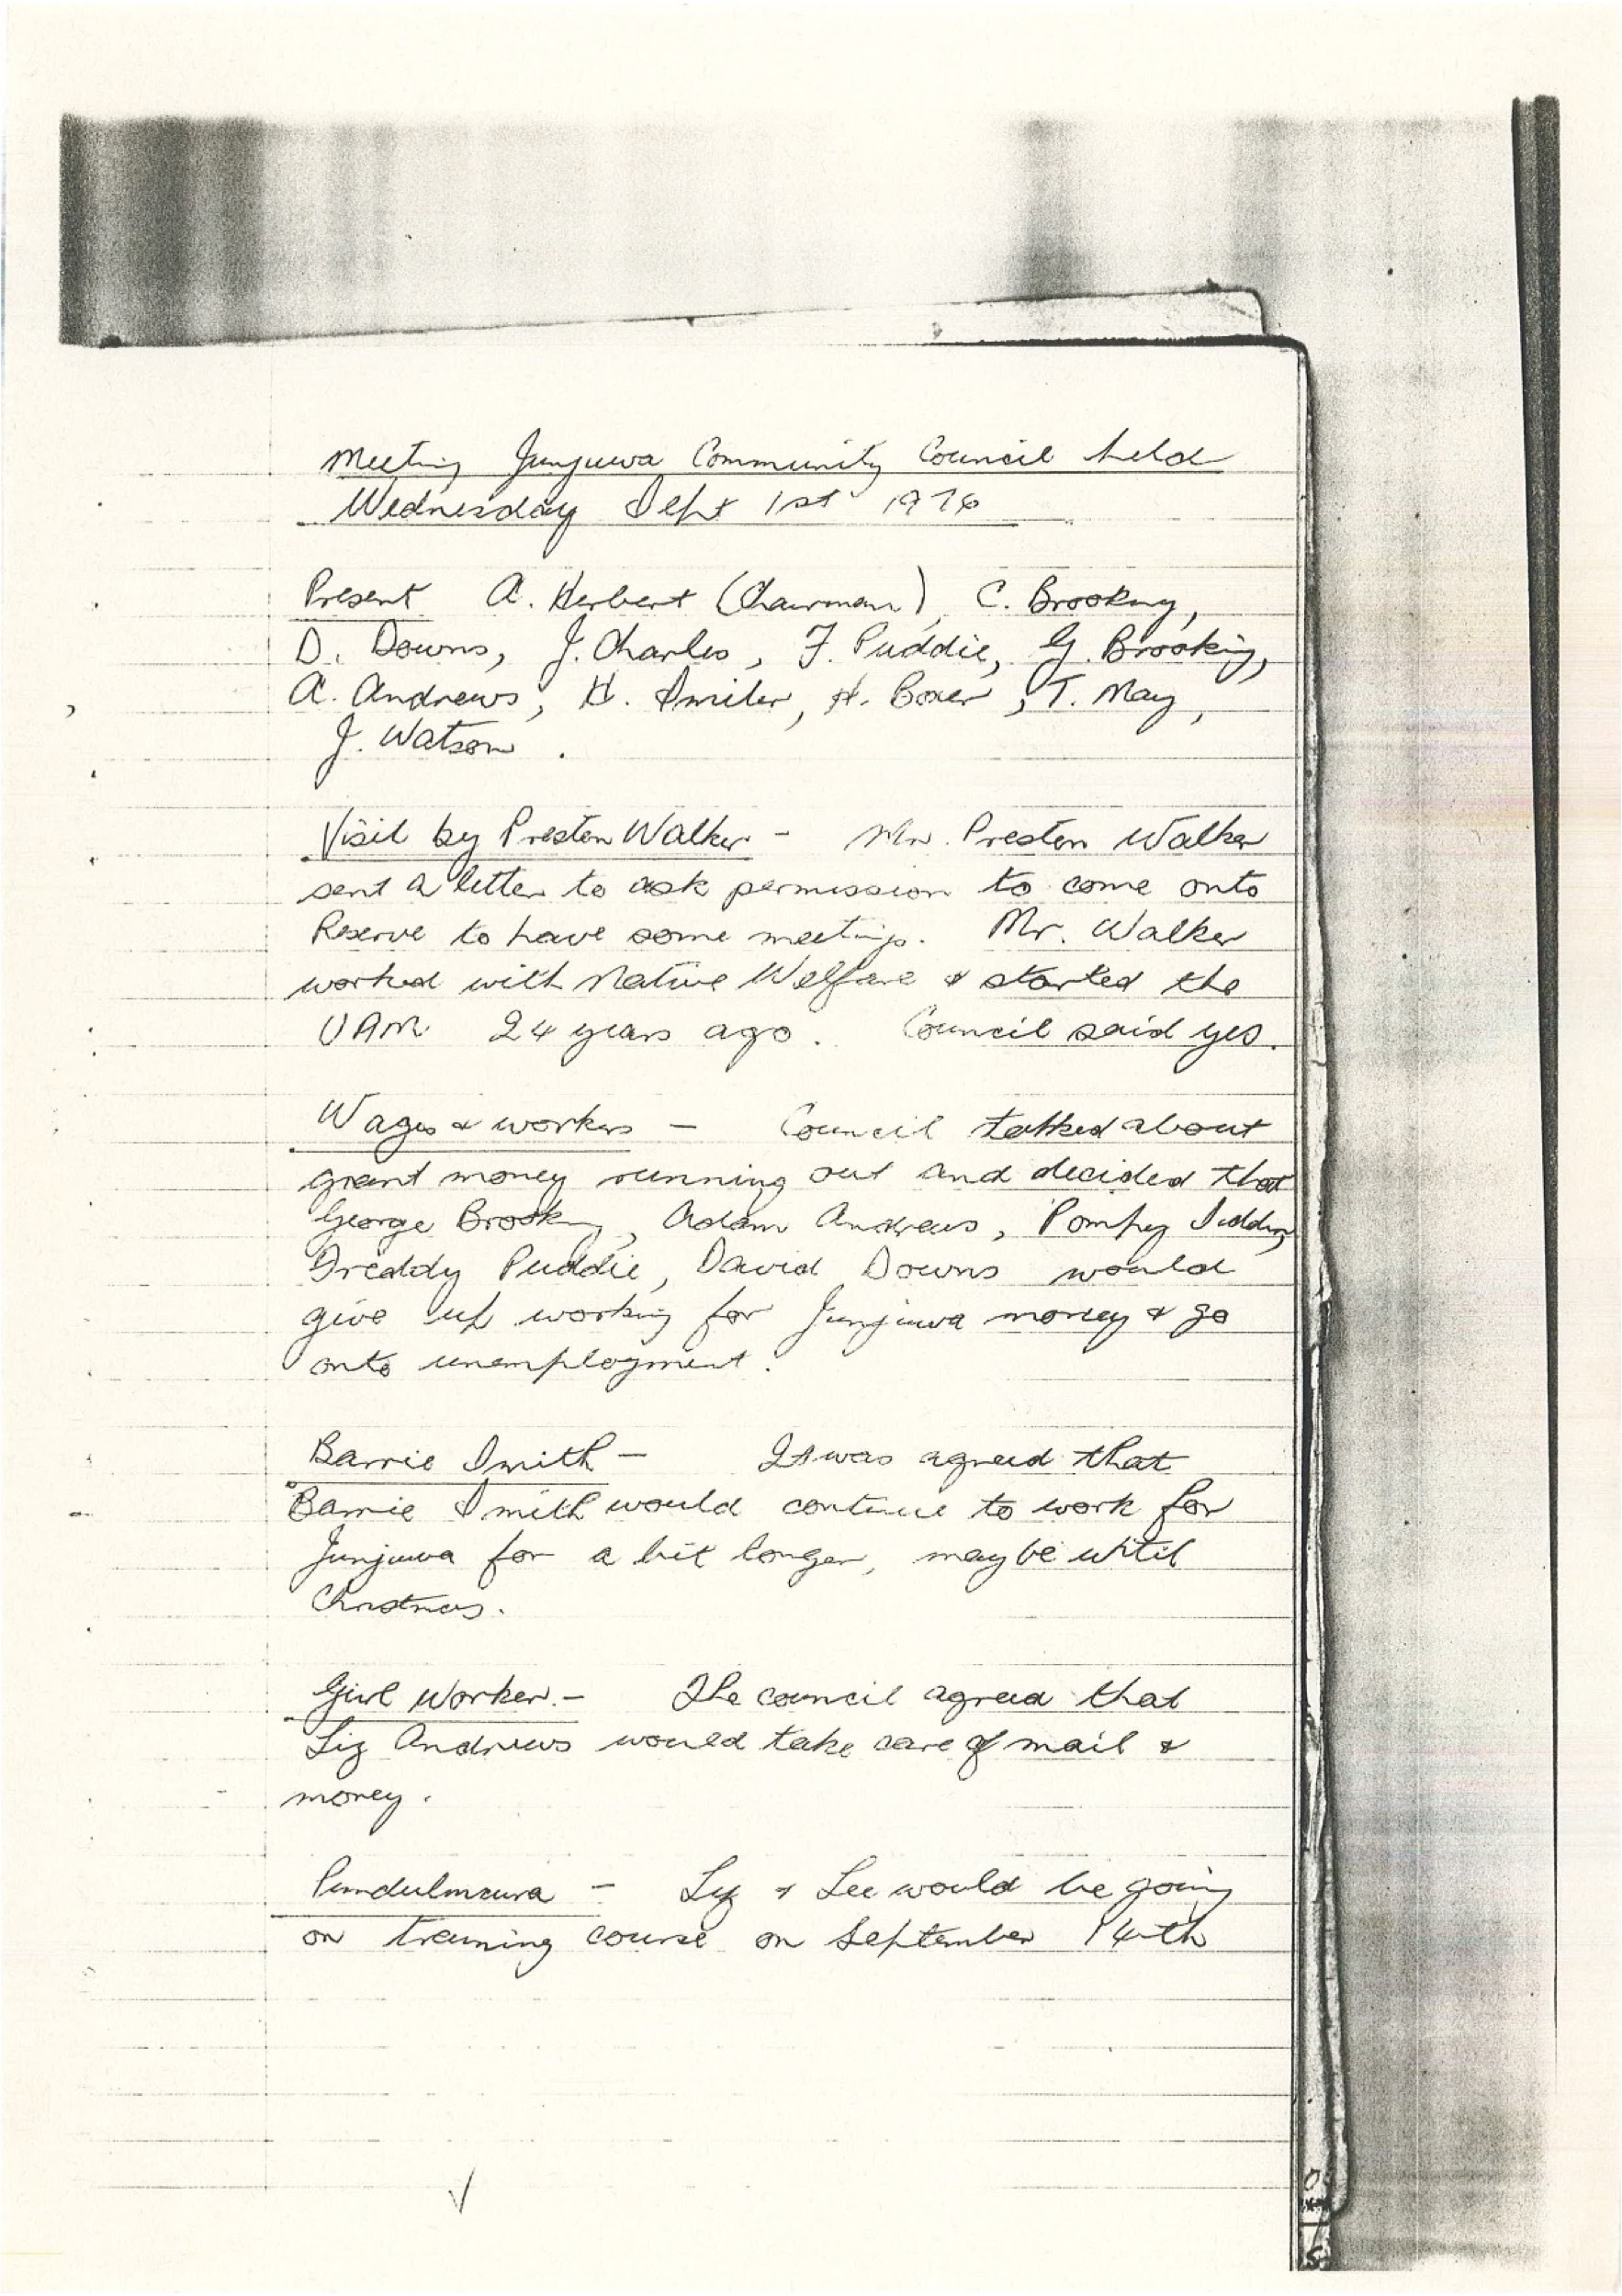 Meeting Junjuwa Community Council held
Wednesday Sept 1st 1976
Present A. Herbert (Chairman), C. Brooking,
D. Downs, J. Charles, F. Puddie, G. Brooking,
A. Andrews, H. Smiler, H. Boxer, T. May,
J. Watson.
Visit by Preston Walker - Mr. Preston Walker
sent a letter to ask permission to come onto
Reserve to have some meetings. Mr. Walker
worked with Native Welfare & started the
UAM 24 years ago. Council said yes.
Wages & workers - Council talked about
grant money running out and decided that
George Brooking, Adam Andrews, Pompey
Freddy Puddie, David Downs would
give up working for Junjuwa money & go
onto unemployment.
Barrie Smith - It was agreed that
Barrie Smith would continue to work for
Junjuwa for a bit longer, maybe until
Christmas.
Girl Worker. - The council agreed that
Liz Andrews would take care of mail &
money.
Pundulmurra - Liz & Lee would be going
on training course on September 14th